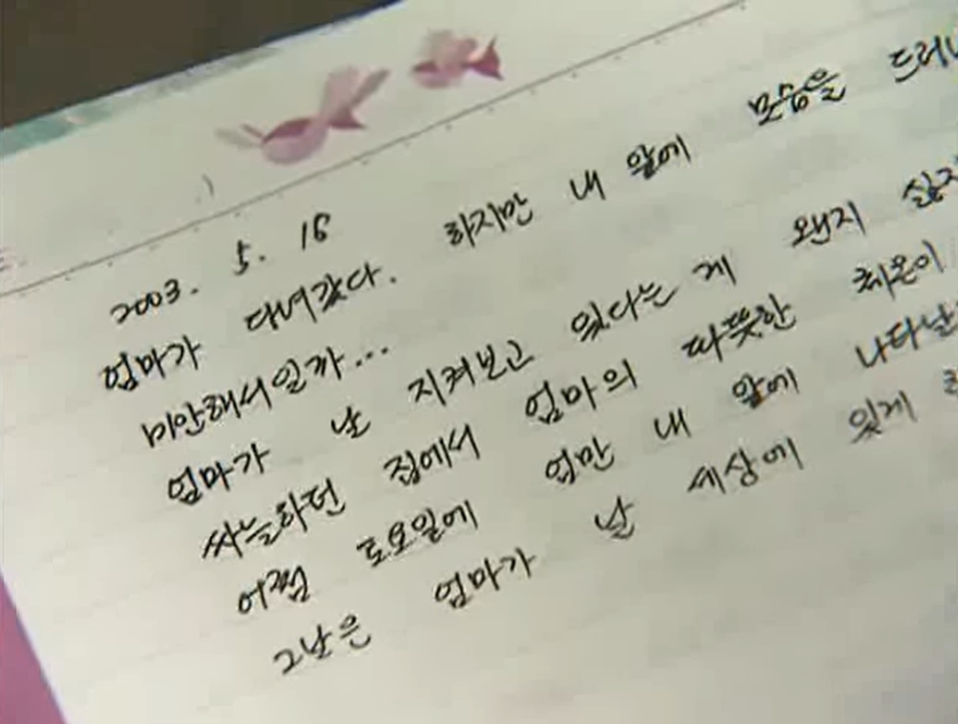 2003. 5. 16
엄마가 다녀갔다. 하지만 내 앞에 모습을
미안해서일까...
엄마가 날 지켜보고 있다는 게 왠지
싸늘하던 집에서 엄마의 따뜻한 체온이
어쩜 토요일에 엄만 내 앞에
그날은 엄마가 날 세상에 있게